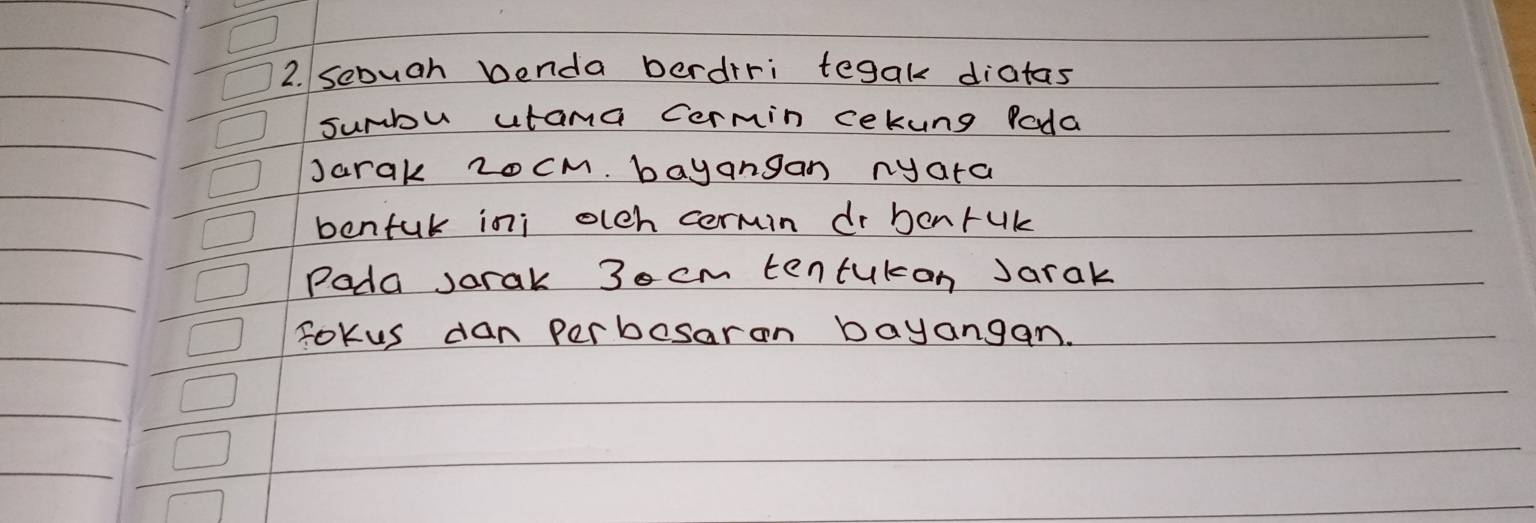 2. Sebuah benda berdiri tegak diatas
sumbu utama cermin cekung Pada
Jarak 20 cm. bayangan nyata
bentuk ini oleh cermin di bentuk
Pada Jarak 30 cm tentukan Jarak
Fokus dan Perbesaran bayangan.